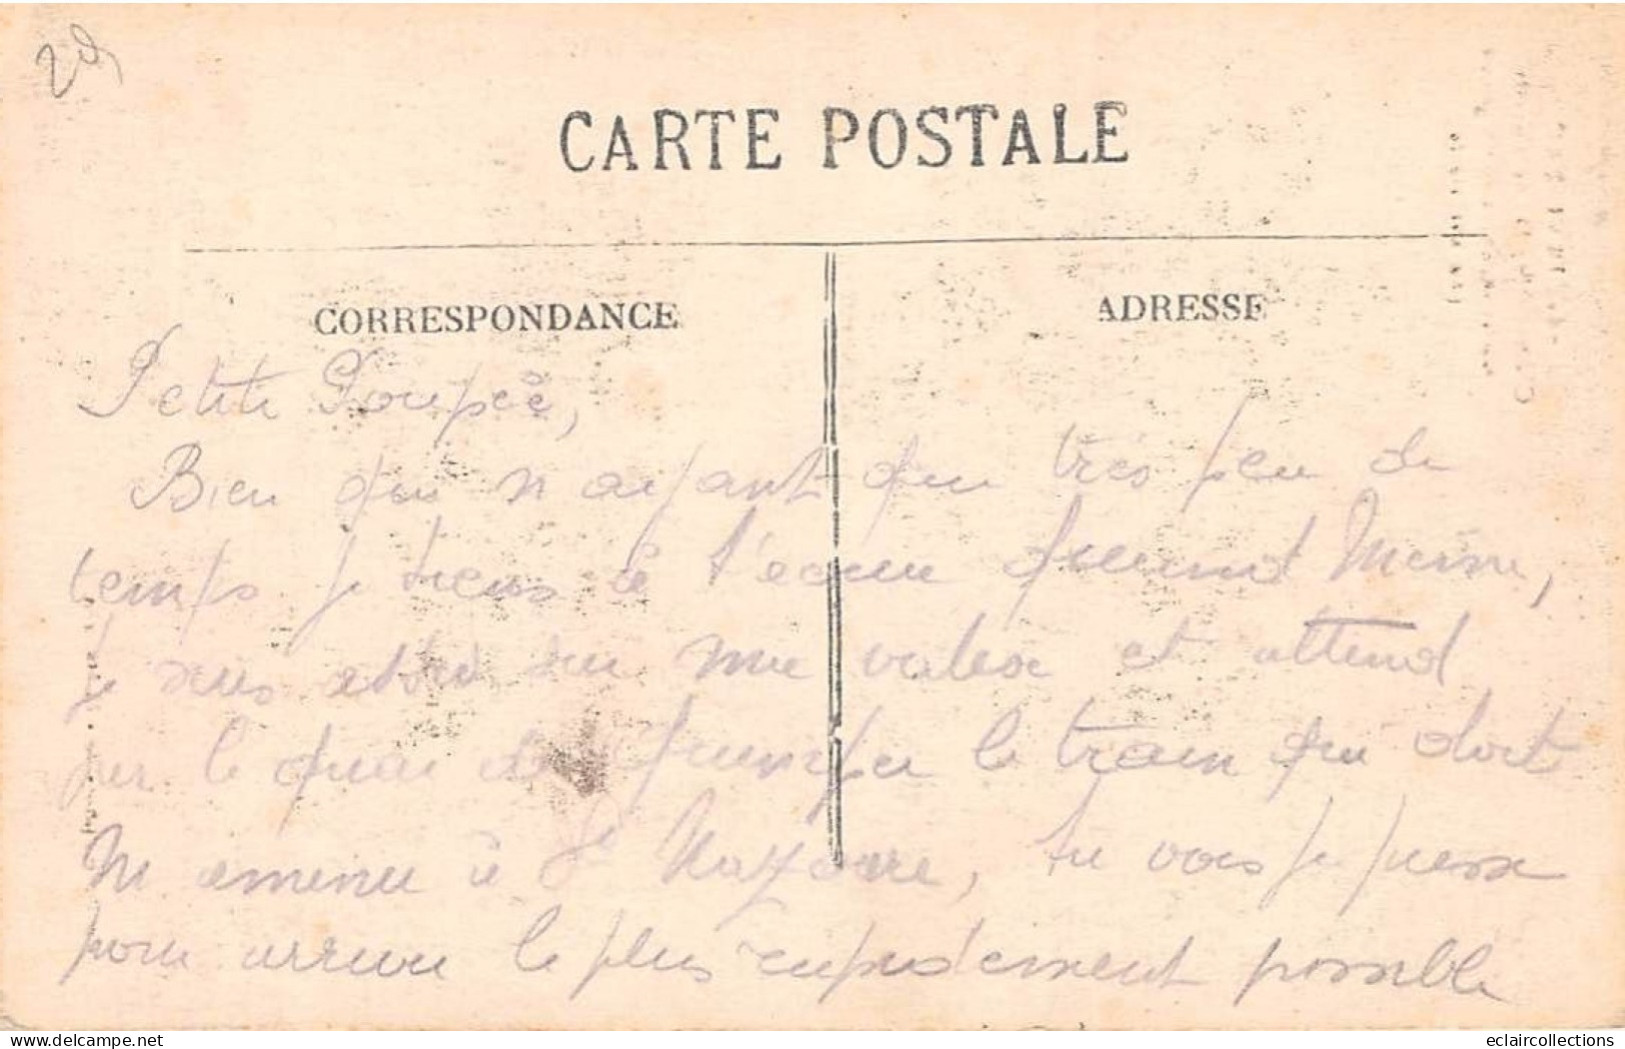 29
CARTE POSTALE
CORRESPONDANCE
ADRESSE
Petite Poupée,
Bien que n'ayant que très peu de
temps je tiens à t'écrire quand même,
je suis sur ma valise et attend
sur le quai de Quimper le train qui doit
m'amener à St Nazaire, tu vois je presse
pour arriver le plus rapidement possible
eclaircollections
delcampe.net